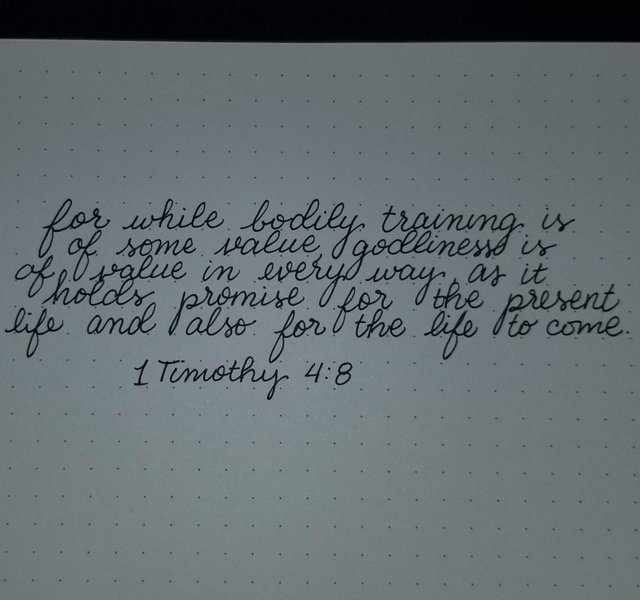 for while bodily training is
of some value godliness is
of value in every way as it
holds promise for the present
life and also for the life to come.
1 Timothy 4:8